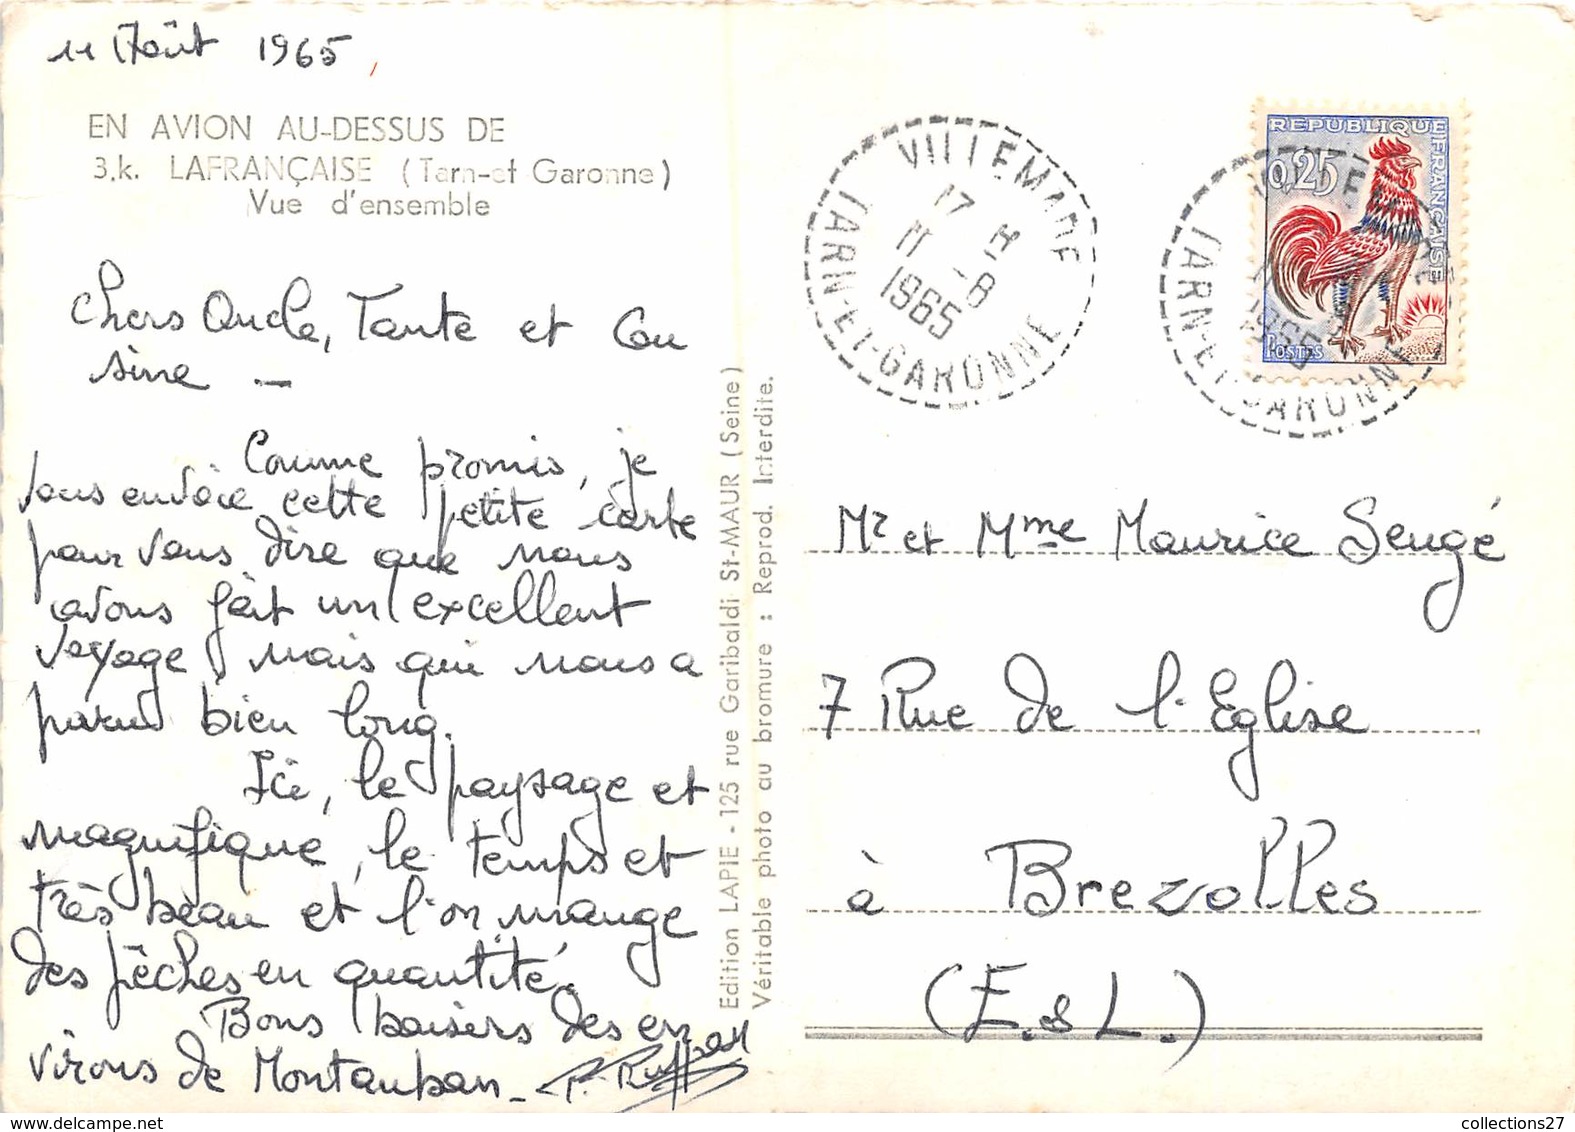 11 Août 1965
EN AVION AU-DESSUS DE
3.k. LAFRANÇAISE (Tarn-et Garonne)
Vue d'ensemble
Chers Oncle, Tante et Cou
sine _
Comme promis, je
vous envoie cette petite carte
pour vous dire que nous
avons fait un excellent
voyage mais qui nous a
paru bien long.
Ici, le paysage et
magnifique, le temps et
très beau et l'on mange
des pêches en quantité.
Bons baisers des en
virons de Montauban _
Edition LAPIE - 125 rue Garibaldi St-MAUR (Seine)
Véritable photo au bromure : Reprod. Interdite.
VILLEMADE
17 H
11 - 8
1965
TARN-ET-GARONNE
REPUBLIQUE FRANÇAISE
0,25
POSTES
VILLEMADE
1965
TARN-ET-GARONNE
Mr et Mme Maurice Sengé
7 Rue de l'Eglise
à Brezolles
(E. & L.)
collections27